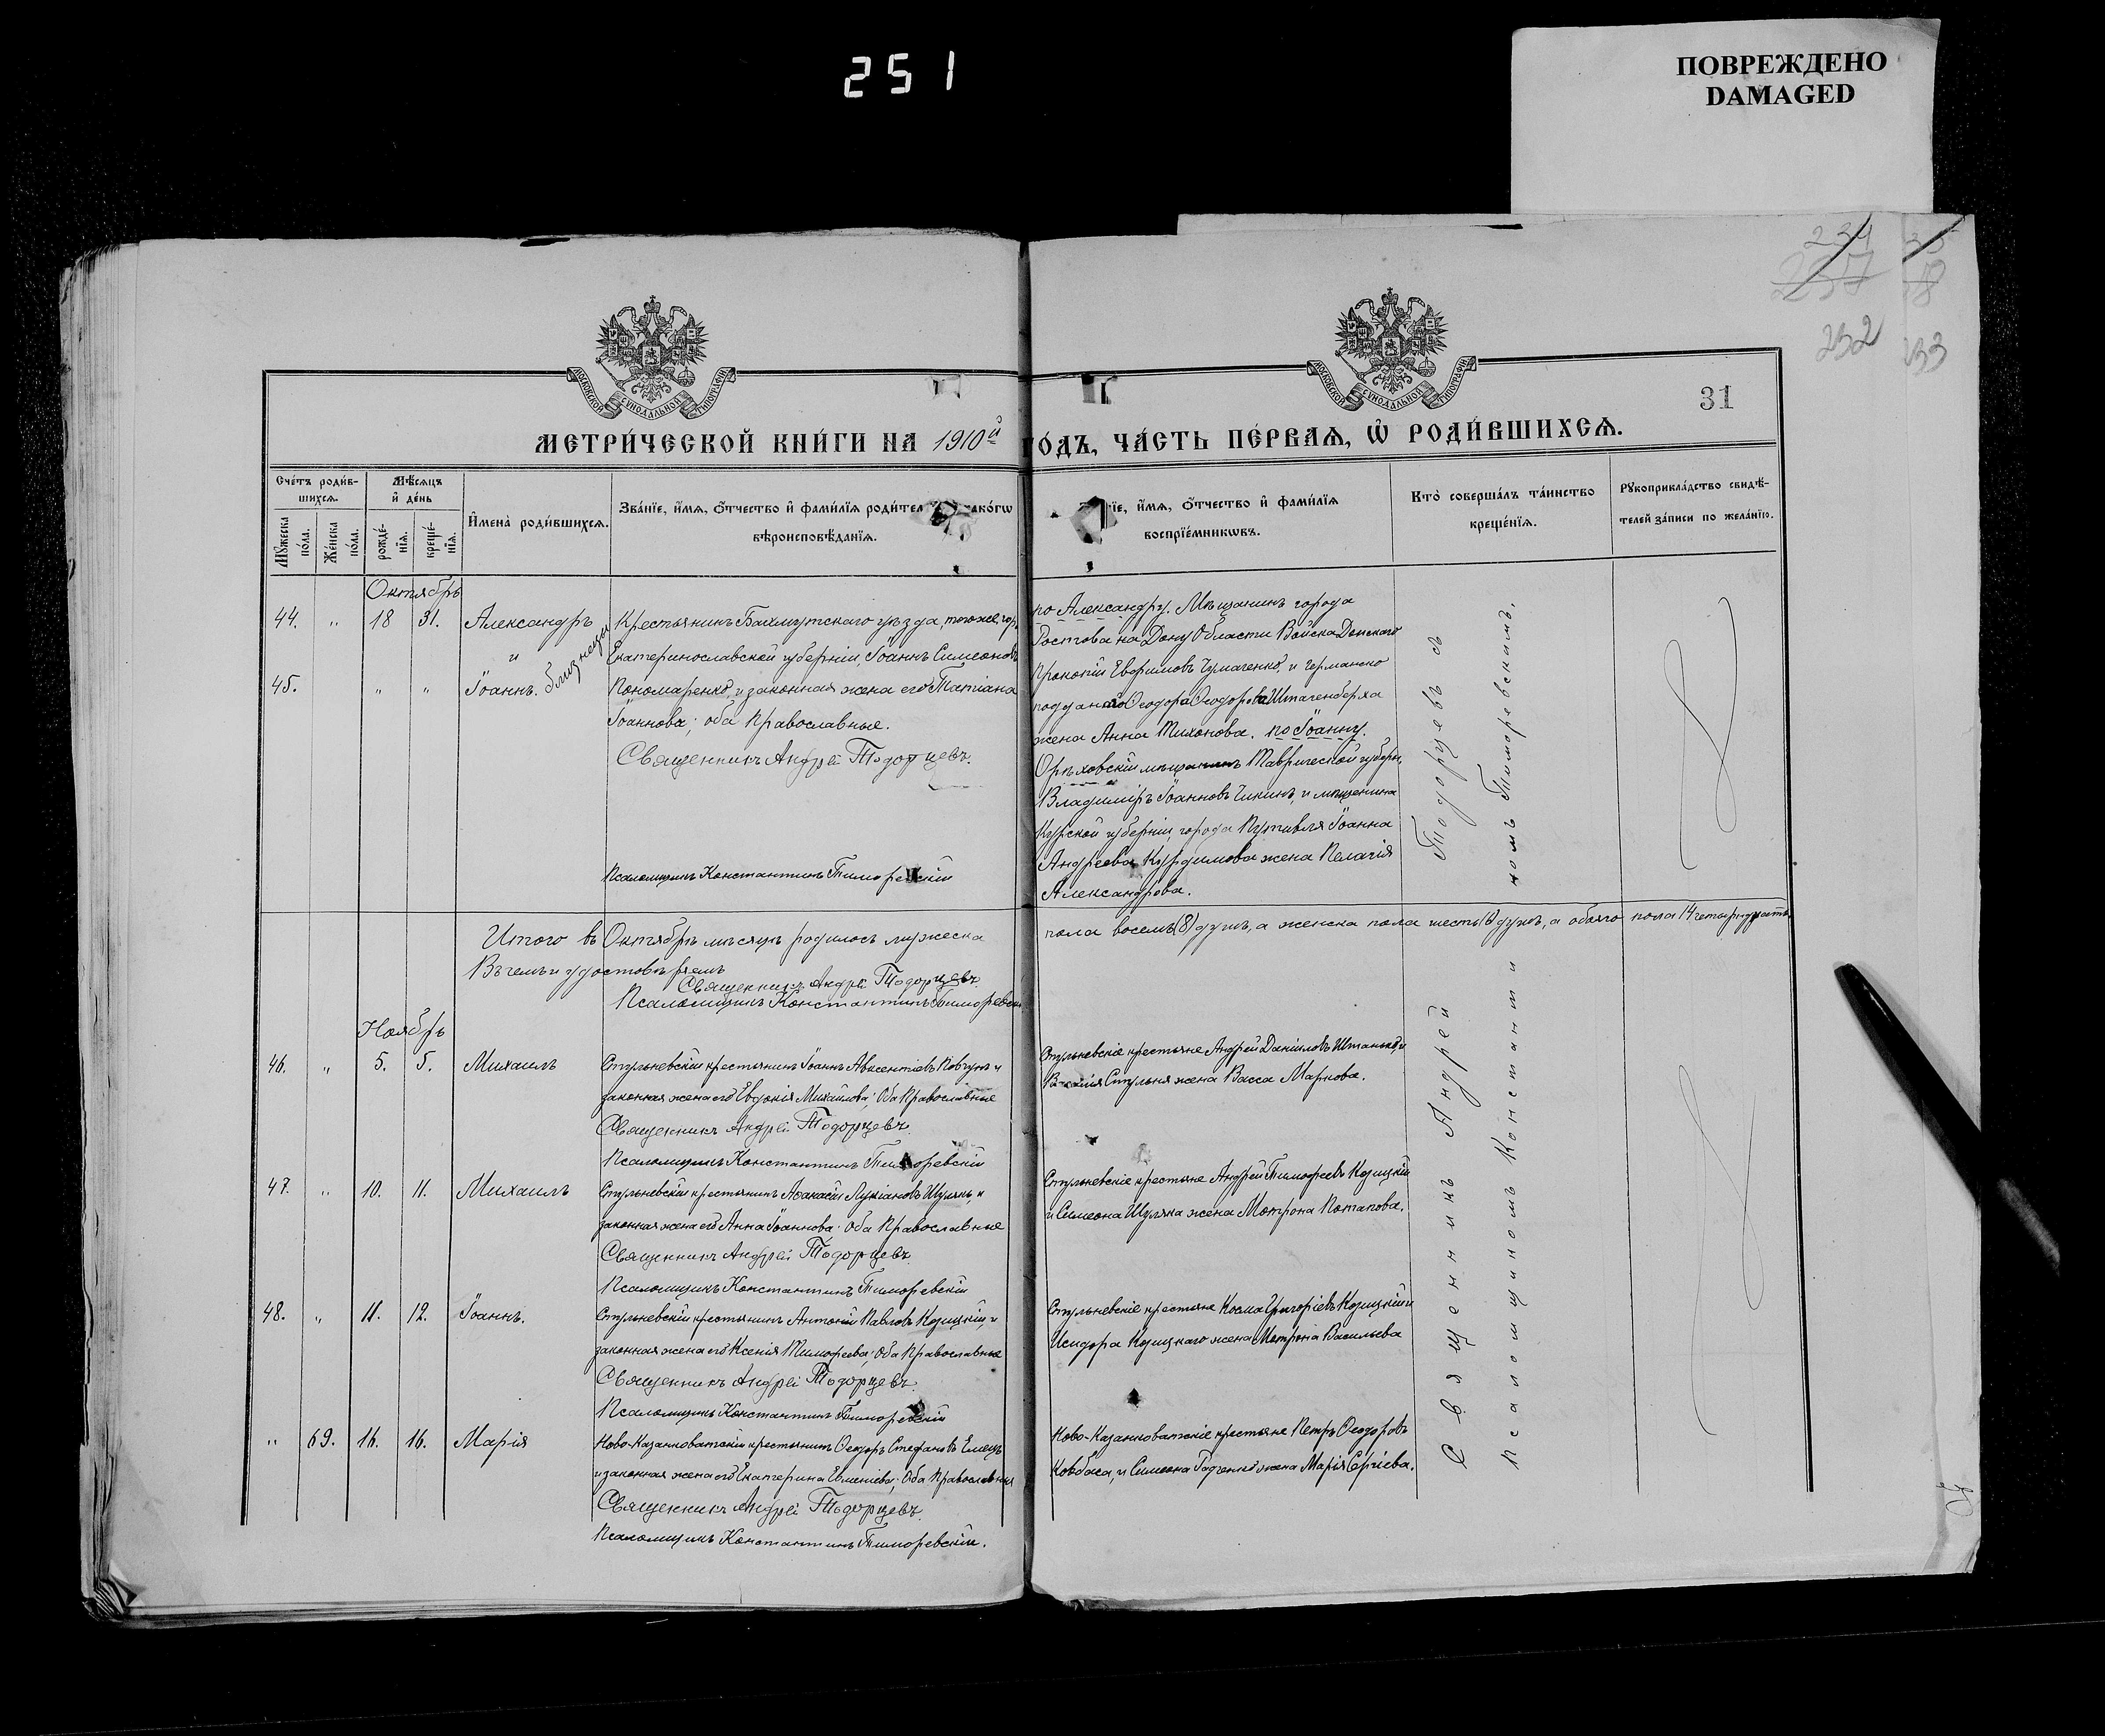 251
ПОВРЕЖДЕНО
DAMAGED
234
232
233
31
МОСКОВСКОЙ СѴНОДАЛЬНОЙ ТИПОГРАФІИ
МОСКОВСКОЙ СѴНОДАЛЬНОЙ ТИПОГРАФІИ
МЕТРИ́ЧЕСКОЙ КНИ́ГИ НА 1910й ГО́ДЪ, ЧА́СТЬ ПЕ́РВАѦ, Ѡ РОДИ́ВШИХСѦ.
Сче́тъ роди́в-
шихсѧ.
Мꙋжеска по́ла.
Же́нска по́ла.
Мѣ́сѧцъ и де́нь
рожде́-нїѧ.
креще́-нїѧ.
И҆мена̀ роди́вшихсѧ.
Зва́нїе, и҆́мѧ, ѻ҆́тчество и҆ фами́лїѧ роди́тел како́гѡ
вѣроисповѣ́данїѧ.
нїе, и҆́мѧ, ѻ҆́тчество и҆ фами́лїѧ
воспрїе́мникѡвъ.
Кто̀ соверша́лъ та́инство
креще́нїѧ.
Рꙋкоприкла́дство свидѣ́-
телей за́писи по жела́нїю.
Октябрь
44. " 18 31. Александръ
и
45. " " Іоаннъ. близнецы
Крестьянинъ Бахмутскаго уѣзда, тогоже гор.
Екатеринославской губерніи, Іоаннъ Симеоновъ
Пономаренко, и законная жена его Татіана
Іоаннова; оба Православные.
Священникъ Андрей Тодорцевъ.
Псаломщикъ Константинъ Тиморевскій
по Александру. Мѣщанинъ города
Ростова на Дону Области Войска Донского
Прокопій Евфимовъ Чумаченко, и Германско
подданаго Ѳеодора Ѳеодорова Штагенберха
жена Анна Тихонова. по Іоанну.
Орѣховскій мѣщанинъ Таврической губерн.
Владиміръ Іоанновъ Чикинъ, и мѣщенина
Курской губерніи, города Путивля Іоанна
Андреева Курдимова жена Пелагія
Александрова.
Итого въ Октябрѣ мѣсяцѣ родилось мужеска
пола восемь (8) душъ, а женска пола шесть душъ, а обоего пола 14 четырнадцать.
Въ чемъ и удостовѣряемъ
Священникъ Андрей Тодорцевъ
Псаломщикъ Константинъ Тиморевск
Ноябрь
46. " 5. 5. Михаилъ
Стульневскій крестьянинъ Іоаннъ Авксентіевъ Ковгунъ и
законная жена его Евдокія Михайлова; Оба Православные
Священникъ Андрей Тодорцевъ.
Псаломщикъ Константинъ Тиморевскій
Стульневскіе крестьяне Андрей Даніиловъ Штанько, и
Стульня жена Васса Маркова.
47. " 10. 11. Михаилъ
Стульневскій крестьянинъ Аѳанасій Лукіановъ Шулякъ, и
законная жена его Анна Іоаннова; Оба Православные
Священникъ Андрей Тодорцевъ
Псаломщикъ Константинъ Тиморевскій
Стульневскіе крестьяне Андрей Тимофеевъ Козицкій
и Симеона Шуляка жена Мотрона Потапова.
48. " 11. 12. Іоаннъ.
Стульневскій крестьянинъ Антоній Павловъ Козицкій, и
законная жена его Ксенія Тимофеева; Оба Православные
Священникъ Андрей Тодорцевъ.
Псаломщикъ Константинъ Тиморевскій
Стульневскіе крестьяне Косма Григоріевъ Козицкій и
Исидора Козицкаго жена Мотрона Васильева
" 69. 16. 16. Марія
Ново-Казанковатскій крестьянинъ Ѳеодоръ Стефановъ Емецъ
и законная жена его Екатерина Евменіева; Оба Православныя
Священникъ Андрей Тодорцевъ.
Псаломщикъ Константинъ Тиморевскій.
Ново-Казанковатскіе крестьяне Петръ Ѳеодоровъ
Ковбаса, и Симеона жена Марія Сергіева.
Священникъ Андрей Тодорцевъ съ
Псаломщикомъ Константиномъ Тиморевскимъ.